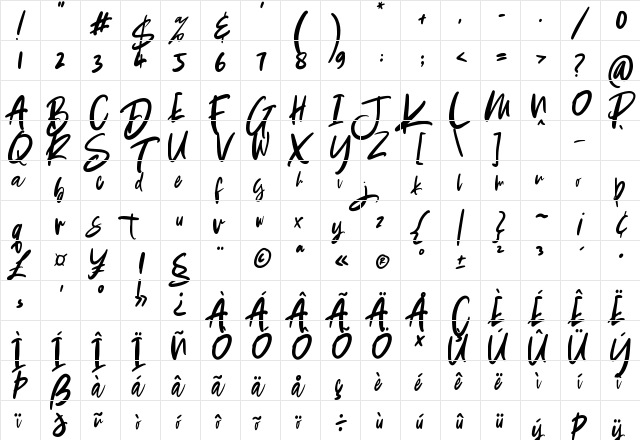 ! " # $ % & ' ( ) * + , - . / 0
1 2 3 4 5 6 7 8 9 : ; < = > ? @
A B C D E F G H I J K L M N O P
Q R S T U V W X Y Z [ \ ] ^ _
a b c d e f g h i j k l m n o p
q r s t u v w x y z { | } ~ ¡ ¢
£ ¤ ¥ ¦ § ¨ © ª « ® ° ± ² ³ ´ ·
¸ ¹ º » ¿ À Á Â Ã Ä Å Ç È É Ê Ë
Ì Í Î Ï Ñ Ò Ó Ô Õ Ö × Ù Ú Û Ü Ý
Þ ß à á â ã ä å ç è é ê ë ì í î
ï ð ñ ò ó ô õ ö ÷ ù ú û ü ý þ ÿ